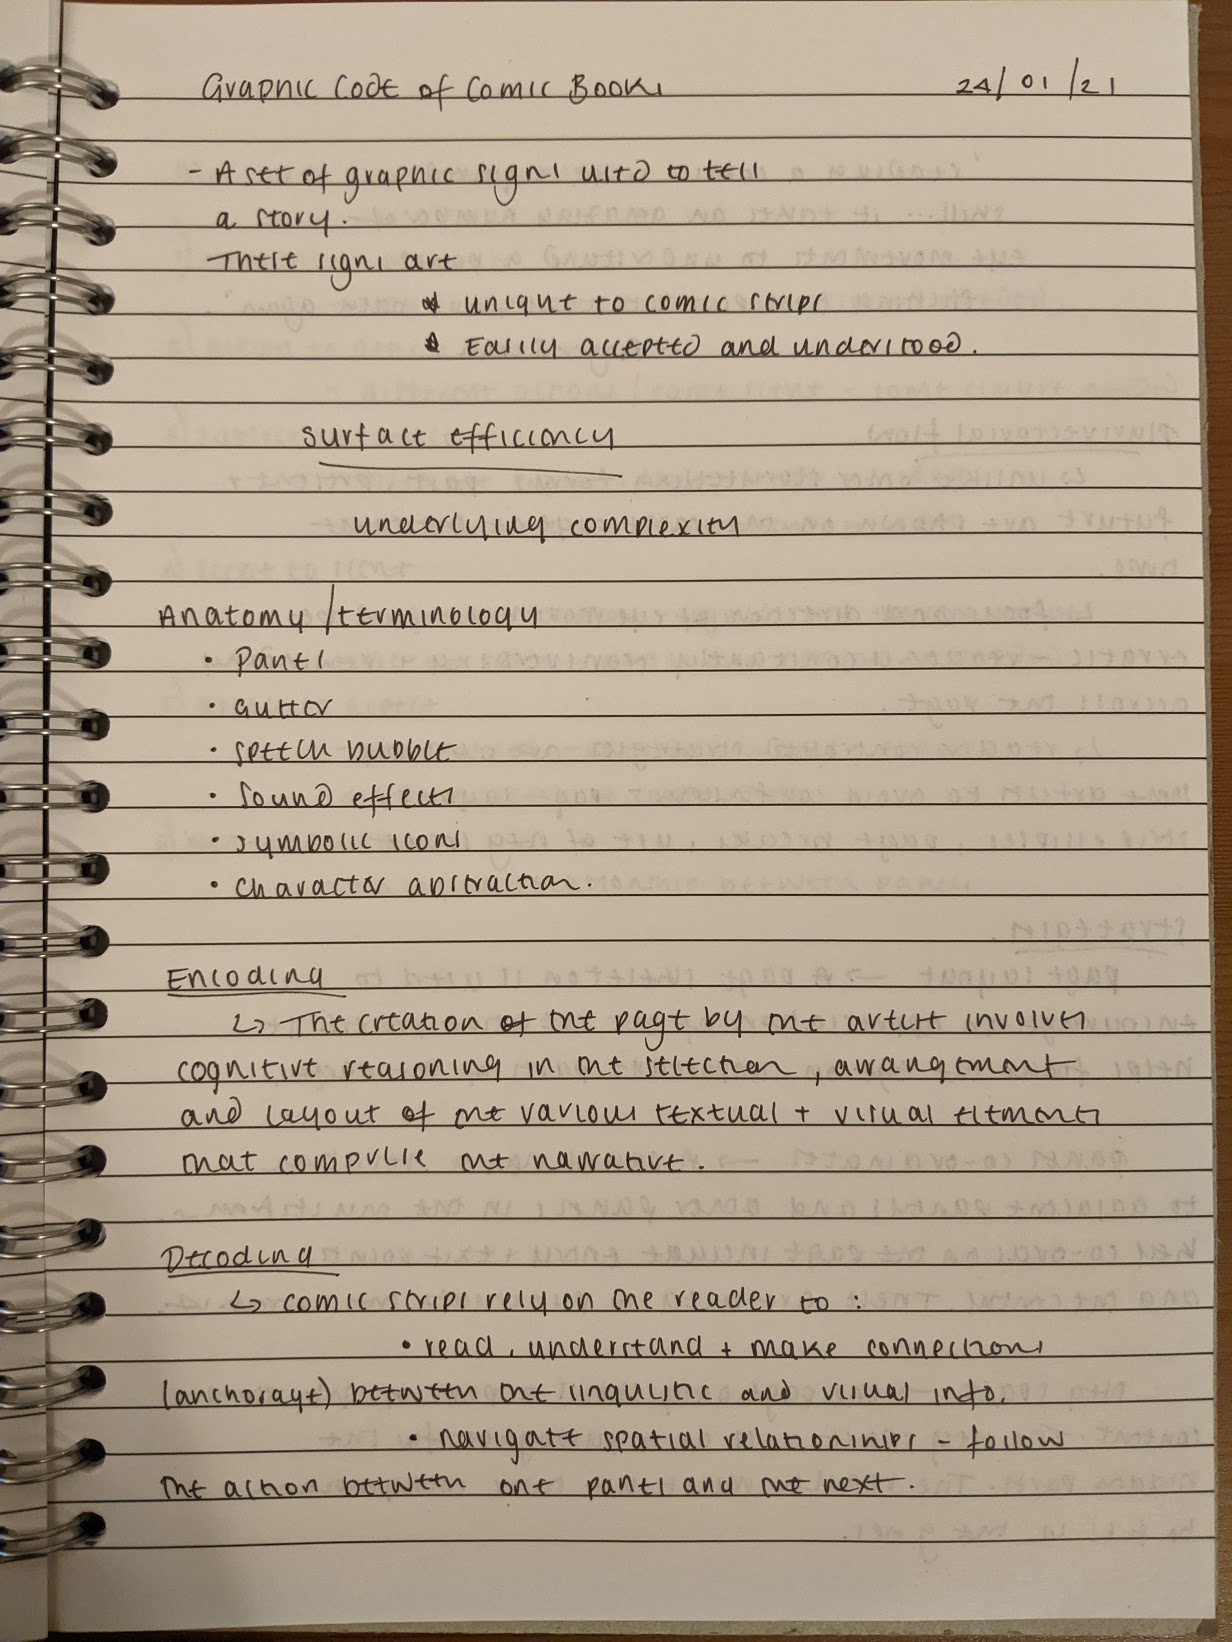 Graphic Code of Comic Books
24/01/21
- A set of graphic signs used to tell
a story.
These signs are
* unique to comic strips
* Easily accepted and understood.
surface efficiency
underlying complexity
Anatomy/terminology
• Panel
• gutter
• speech bubble
• sound effects
• symbolic icons
• character abstraction.
Encoding
↳ The creation of the page by the artist involves
cognitive reasoning in the selection, arrangement
and layout of the various textual + visual elements
that comprise the narrative.
Decoding
↳ comic strips rely on the reader to :
• read, understand + make connections
(anchorage) between the linguistic and visual info.
• navigate spatial relationships - follow
the action between one panel and the next.